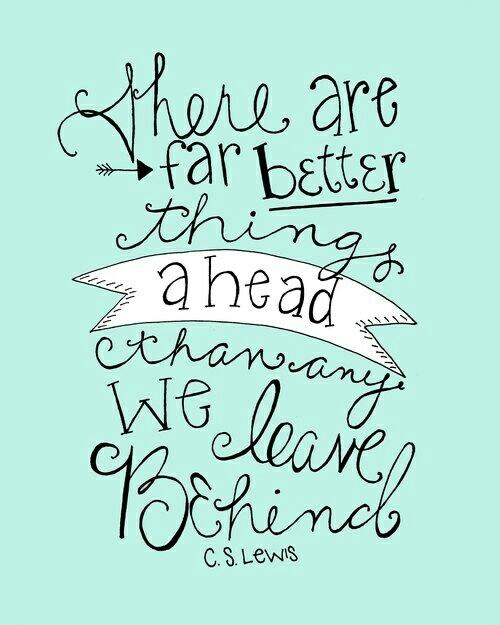 There are
far better
things
ahead
than any
We leave
Behind
C. S. Lewis